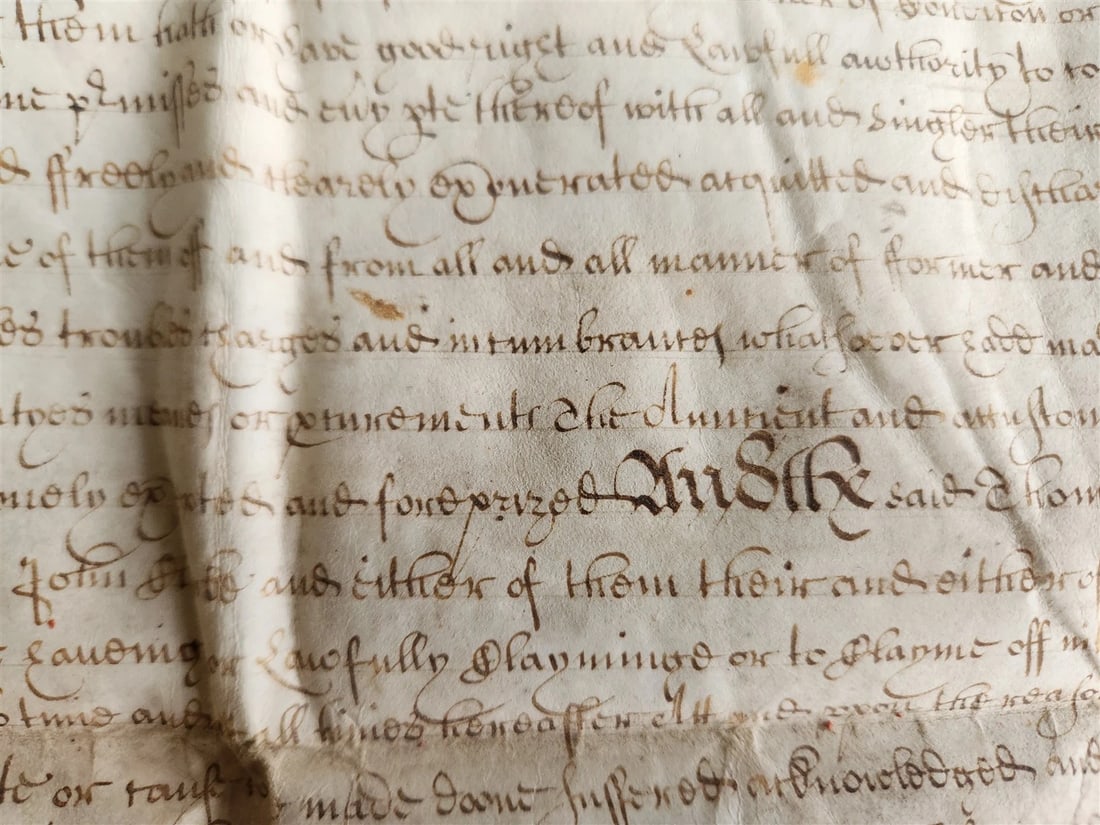 them hath or have good right and Lawfull awthority to
and evry pte thereof with all and Singler their
ffreely and Clearely exonerated acquitted and discha
of them off and from all and all manner of former and
troubles Charges and incumbrances whatsoever hadd ma
or p'curements The Auntient and accustom
and foreprized And the said Thom
John and either of them their and either of
haveing or Lawfully Clayminge or to Clayme off in
tyme and all times hereafter Att and uppon the reaso
or cause made doone suffered acknowledged and